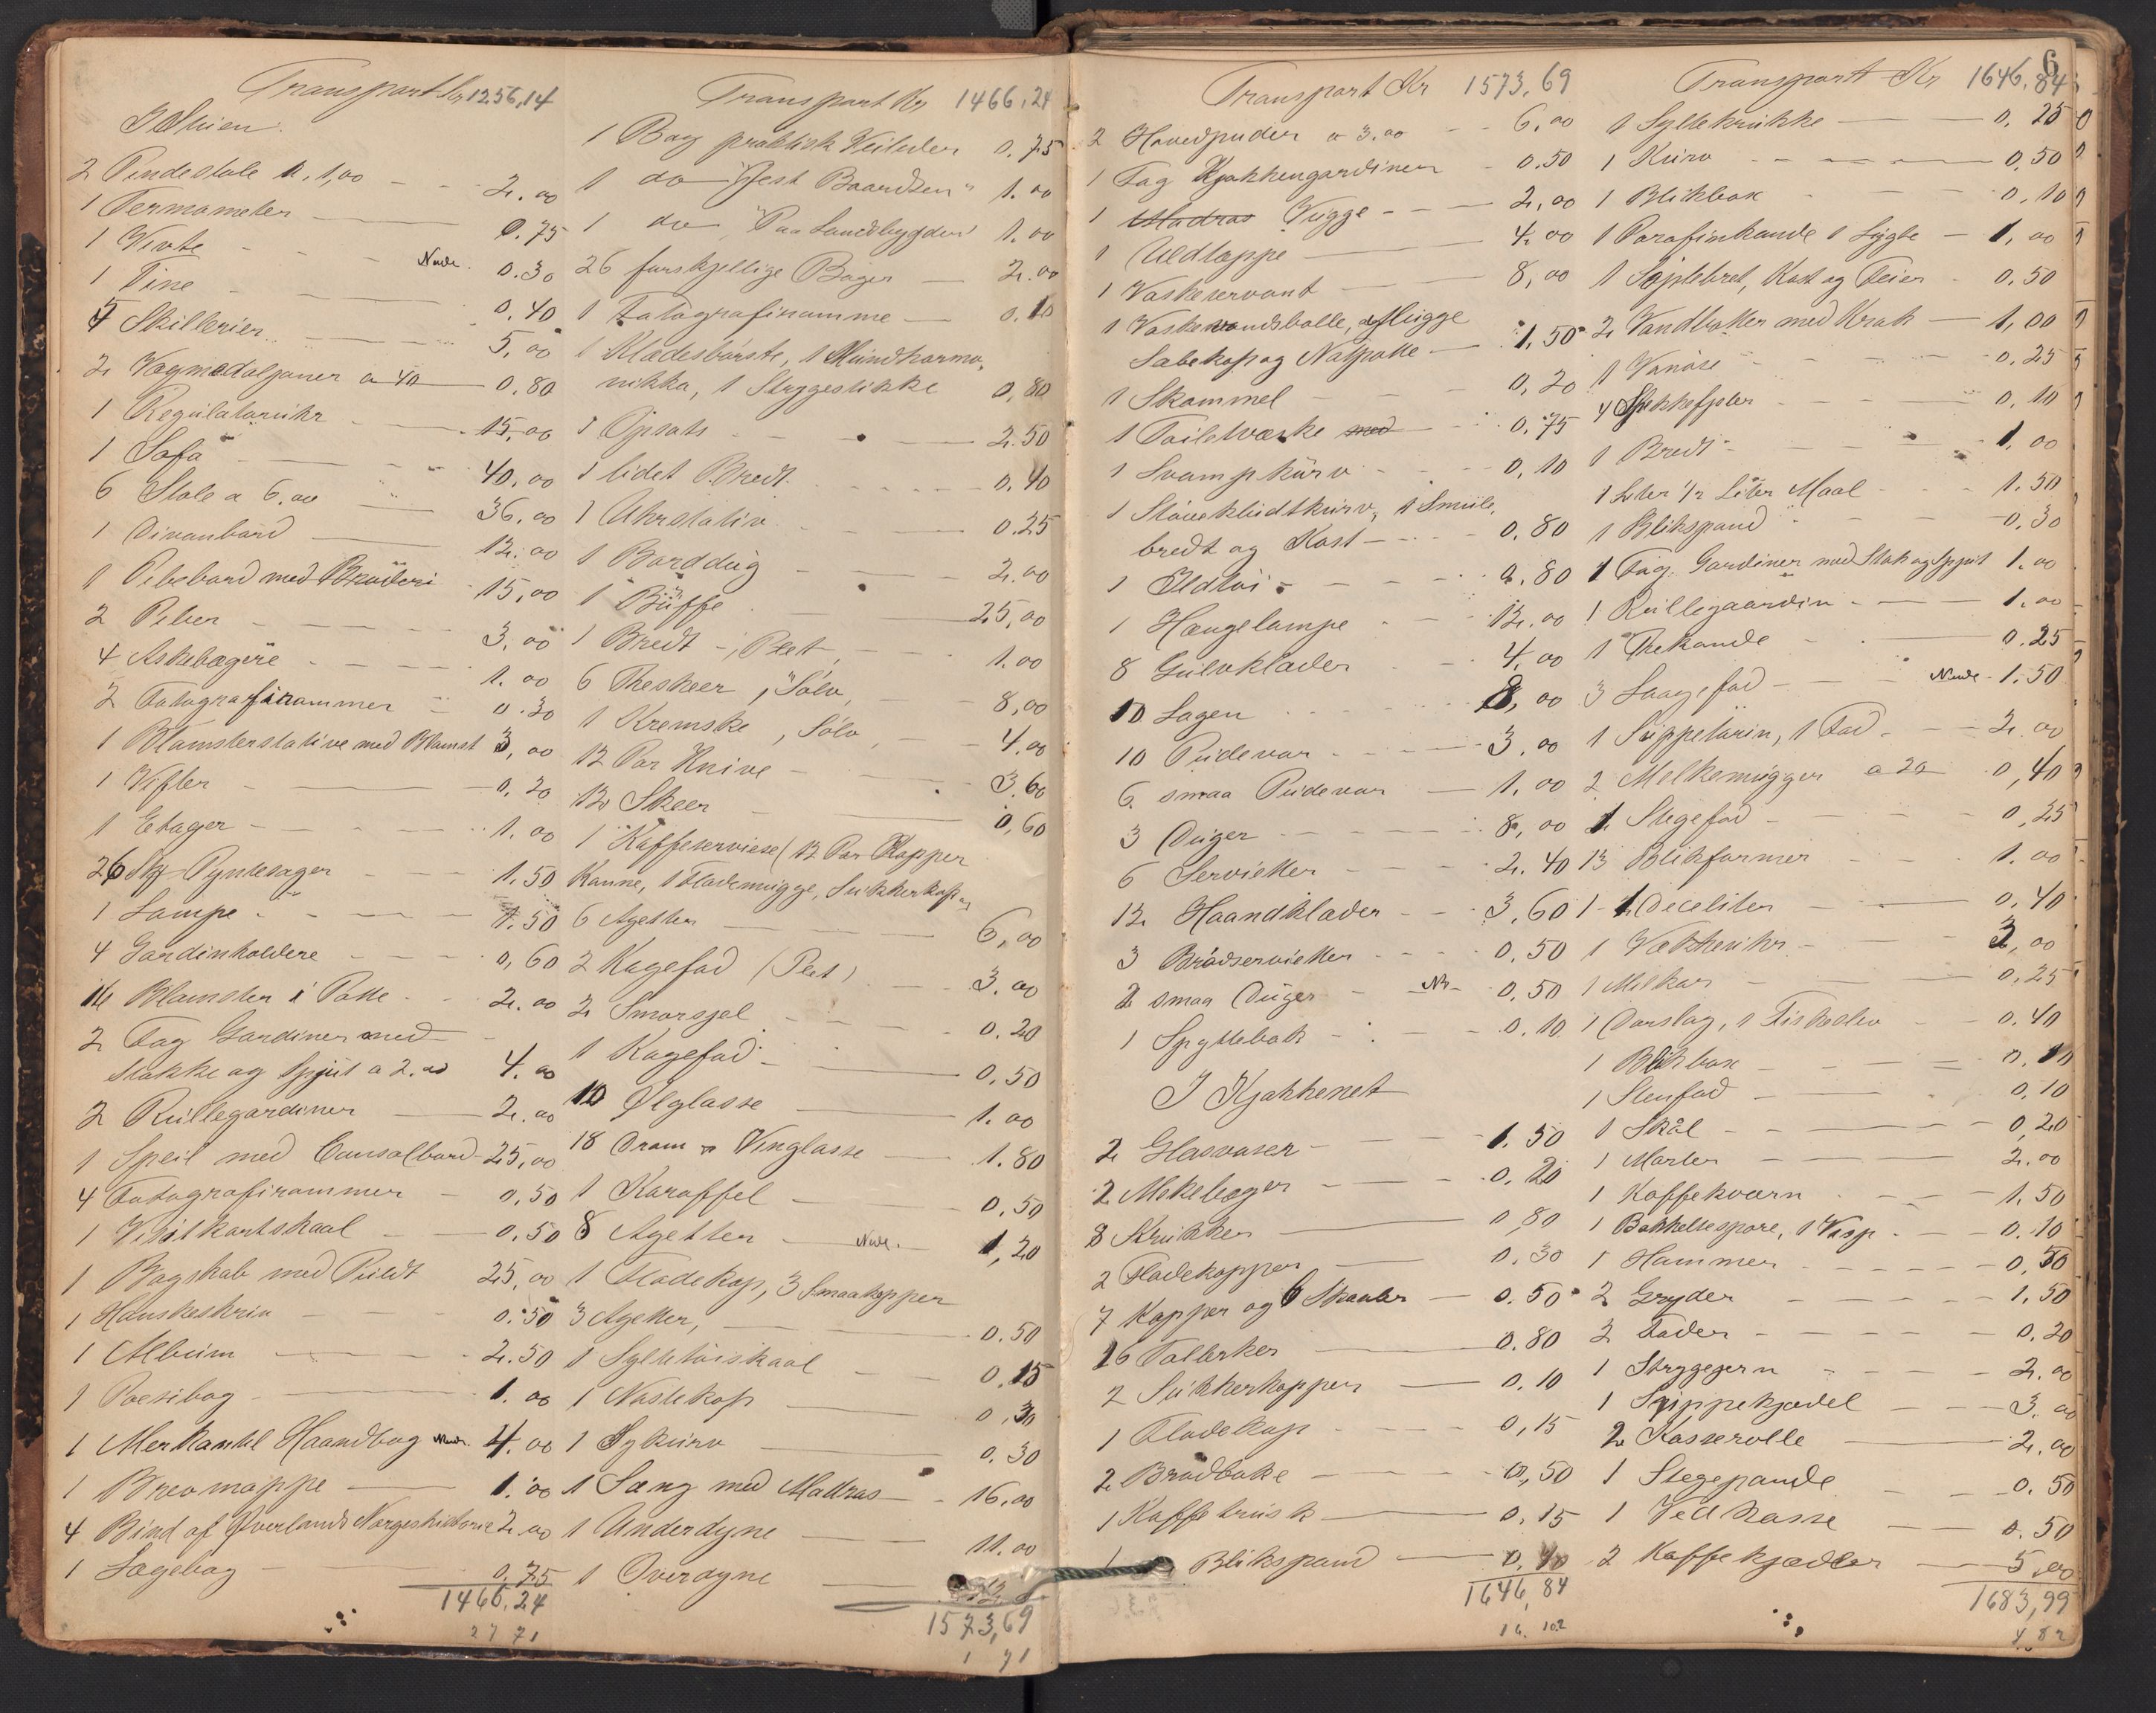 Transport Kr 1256,14
I Stuen.
2 Pindestole a. 1,00 2.00
1 Termometer 0.75
1 Vivte Nade. 0.30
1 Tine 0.40
7 Skillerier 5,00
2 Vægmedaljoner a 40 0.80
1 Regulatoruhr 15,00
1 Sofa 40,00
6 Stole a 6.00 36,00
1 Divanbord 12.00
1 Pibebord med Broderi 15,00
2 Piber 3,00
4 Askebægere 1.00
2 Fotografirammer 0.30
1 Blomsterstative med Blomst 3,00
1 Vifter 0.20
1 Etager 1.00
26 Stk Pyntesager 1.50
1 Lampe 1.50
4 Gardinholdere 0,60
14 Blomster i Potte 2.00
2 Fag Gardiner med
Stokke og Spjut a 2.00 4.00
2 Rullegardiner 2.00
1 Speil med Consolbord 25,00
4 Fotografirammer 0,50
1 Visitkortskaal 0.50
1 Bogskab med Puldt 25,00
1 Hanskeskrin 0.50
1 Album 2.50
1 Poesibog 1.00
1 Merkantil Haandbog 4.00
1 Brevmappe 1.00
4 Bind af Øverlands Norgeshistorie 2.00
1 Lægebog 0,75
1466,24
27 71
Transport Kr 1466,24
1 Bog praktisk Veileder 0.75
1 do "Jest Baardsen" 1.00
1 do "Paa Landsbygden" 1.00
26 forskjellige Bøger 2.00
1 Fotografiramme 0.10
1 Klædesbørste, 1 Mundharmo-
nikka, 1 Stryggestikke 0,80
1 Opsats 2.50
1 lidet Bredt 0.40
1 Uhrstativ 0.25
1 Borddug 2.00
1 Büffe 25,00
1 Bredt, Plet 1.00
6 Theskeer, Sølv 8,00
1 Kremske, Sølv 4.00
12 Par Knive 3.60
12 Skeer 0,60
1 Kaffeserviese (12 Par Kopper
Kanne, 1 Flødemugge, Sukkerkop
6 Asjetter 6,00
2 Kagefad (Plet) 3.00
2 Smørsjel 0.20
1 Kagefad 0.50
10 Ølglasse 1.00
18 Dram & Vinglasse 1.80
1 Karaffel 0,50
8 Asjetter 1,20
1 Flødekop, 3 Smaakopper
3 Asjetter, 0.50
1 Syltetøiskaal 0.15
1 Naslekop 0,30
1 Sykurv 0.30
1 Sæng med Madras 16,00
1 Underdyne 11.00
1 Overdyne
1573,69
1 71
Transport Kr 1573,69
2 Hovedpuder a 3.00 6,00
1 Fag Kjøkkengardiner 0.50
1 Madras Vugge 2,00
1 Uldtæppe 4.00
1 Vaskeservant 8,00
1 Vaskevandsbolle, Mugge
Sæbekop og Natpotte 1.50
1 Skammel 0,20
1 Toiletvæske med 0,75
1 Svampkurv 0,10
1 Støvekludtkurv, 1 Smule-
bredt og Kost 0,80
1 Ildtøi 0.80
1 Hængelampe 12.00
8 Gulvklæder 4,00
10 Lagen 8,00
10 Pudevar 3.00
6 smaa Pudevar 1.00
3 Duger 8,00
6 Servietter 2.40
12 Haandklæder 3,60
3 Brødservietter 0,50
2 smaa Duger 0,50
1 Spyttebak 0.10
I Kjøkkenet
2 Glasvaser 1.50
2 Askebæger 0.20
8 Krukker 0,80
2 Flødekopper 0.30
7 Kopper og 6 Skaaler 0.50
16 Tallerker 0.80
2 Sukkerkopper 0.10
1 Flødekop 0,15
2 Brødboke 0,50
1 Kaffebrusk 0,15
1 Blikspand 0,40
1646,84
16. 102
6
Transport Kr 1646,84
1 Syltekrukke 0.25
1 Kurv 0,50
1 Blikbox 0,10
1 Parafinkande 1 Lygte 1,00
1 Søplebret, Kost og Feier 0.50
2 Vandbøtter med Krak 1,00
1 Vanøse 0.25
4 Spekkefjøler 0,10
1 Bredt 1.00
1 Liter ½ Liter Maal 1.50
1 Blikspand 0,30
1 Fag. Gardiner med Stok og Spjut 1.00
1 Rullegaardin 1.00
1 Thekande 0.25
3 Laagefad 1.50
1 Suppeterin, 1 Fad 2.00
2 Melkemugger a 20 0,40
1 Stegefad 0,25
13 Blikformer 1.00
1 Deceliter 0,40
1 Vækkeruhr 3,00
1 Melkar 0,25
1 Dørslag, 1 Fiskeslev 0.40
1 Blikbox 0.10
1 Stenfad 0,10
1 Skål 0,20
1 Morter 2.00
1 Kaffekværn 1.50
1 Bakkelsespore, 1 Visp 0.10
1 Hammer 0,50
2 Gryder 1.50
2 Fader 0.20
1 Strygejern 2.00
1 Suppekjedel 3.00
2 Kasserolle 2.00
1 Stegepande 0.50
1 Vedkasse 0.50
2 Kaffekjedler 5,00
1683,99
4 82